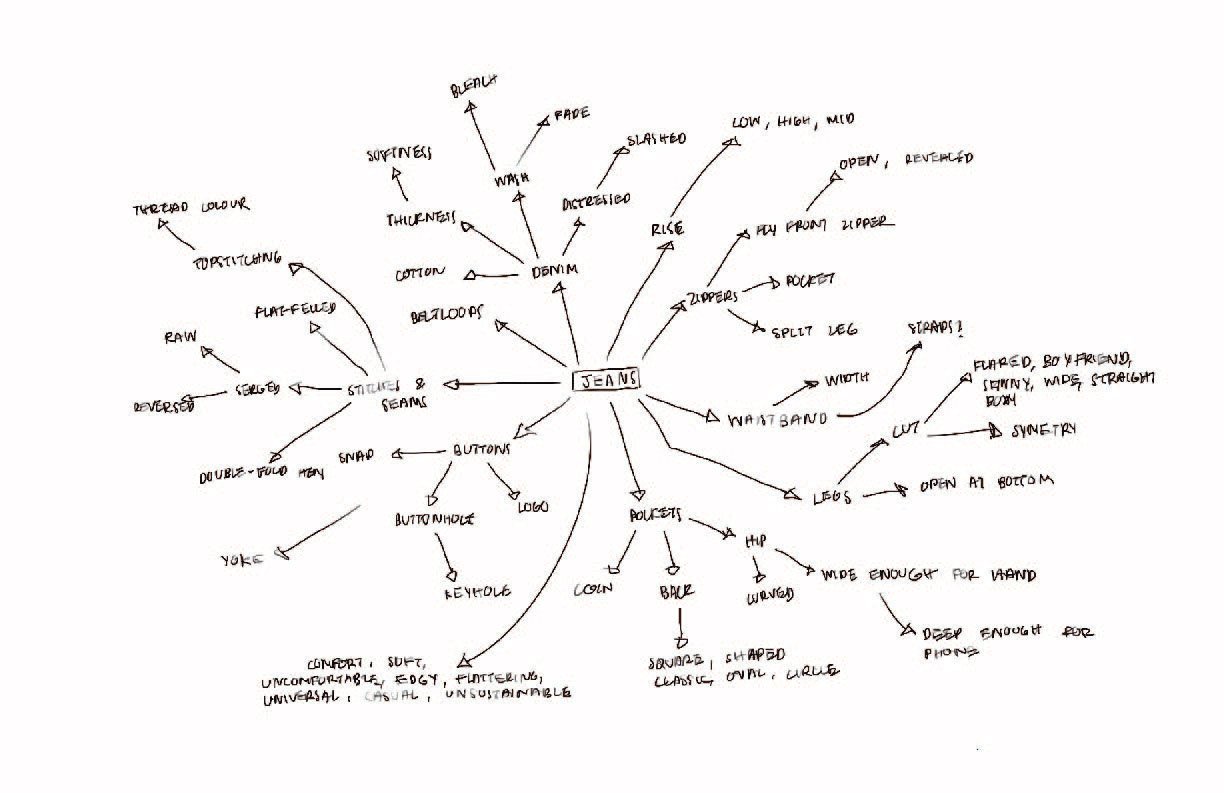 BLEACH
FADE
LOW, HIGH, MID
SLASHED
SOFTNESS
OPEN, REVEALED
WASH
DISTRESSED
THREAD COLOUR
THICKNESS
RISE
FLY FRONT ZIPPER
TOPSTITCHING
COTTON
DENIM
POCKET
ZIPPERS
FLAT-FELLED
BELTLOOPS
SPLIT LEG
STRAPS?
RAW
FLARED, BOYFRIEND,
SKINNY, WIDE, STRAIGHT
BOXY
JEANS
WIDTH
SERGED
STITCHES &
SEAMS
REVERSED
WAISTBAND
CUT
SYMETRY
SNAP
BUTTONS
DOUBLE-FOLD HEM
LEGS
OPEN AT BOTTOM
LOGO
BUTTONHOLE
POCKETS
HIP
YOKE
WIDE ENOUGH FOR HAND
KEYHOLE
COIN
BACK
CURVED
DEEP ENOUGH FOR
PHONE
COMFORT, SOFT,
UNCOMFORTABLE, EDGY, FLATTERING,
UNIVERSAL, CASUAL, UNSUSTAINABLE
SQUARE, SHAPED
CLASSIC, OVAL, CIRCLE